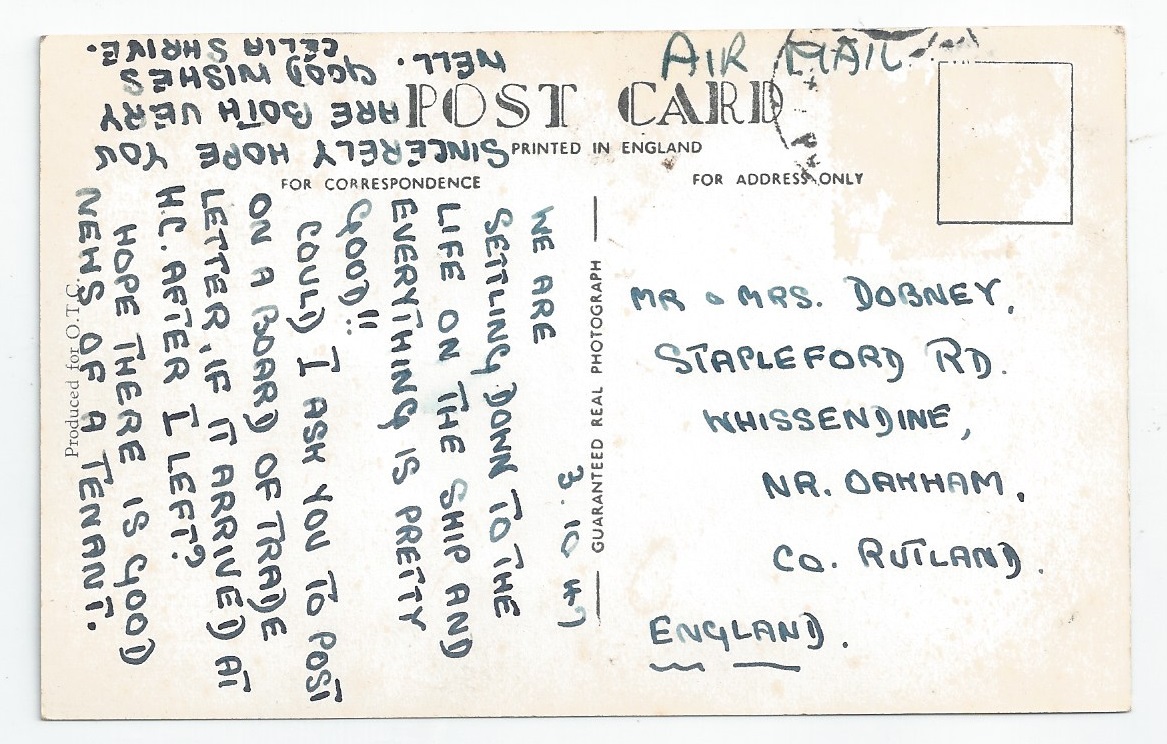 AIR MAIL
POST CARD
PRINTED IN ENGLAND
FOR CORRESPONDENCE
FOR ADDRESS ONLY
3. 10 47
WE ARE
SETTLING DOWN TO THE
LIFE ON THE SHIP AND
EVERYTHING IS PRETTY
GOOD!!
COULD I ASK YOU TO POST
ON A BOARD OF TRADE
LETTER, IF IT ARRIVED AT
H.C. AFTER I LEFT?
HOPE THERE IS GOOD
NEWS OF A TENANT.
SINCERELY HOPE YOU
ARE BOTH VERY
WELL.
GOOD WISHES
CELIA SHRIVE.
GUARANTEED REAL PHOTOGRAPH
Produced for O.T.C.
MR & MRS. DOBNEY,
STAPLEFORD RD.
WHISSENDINE,
NR. OAKHAM,
CO. RUTLAND.
ENGLAND.